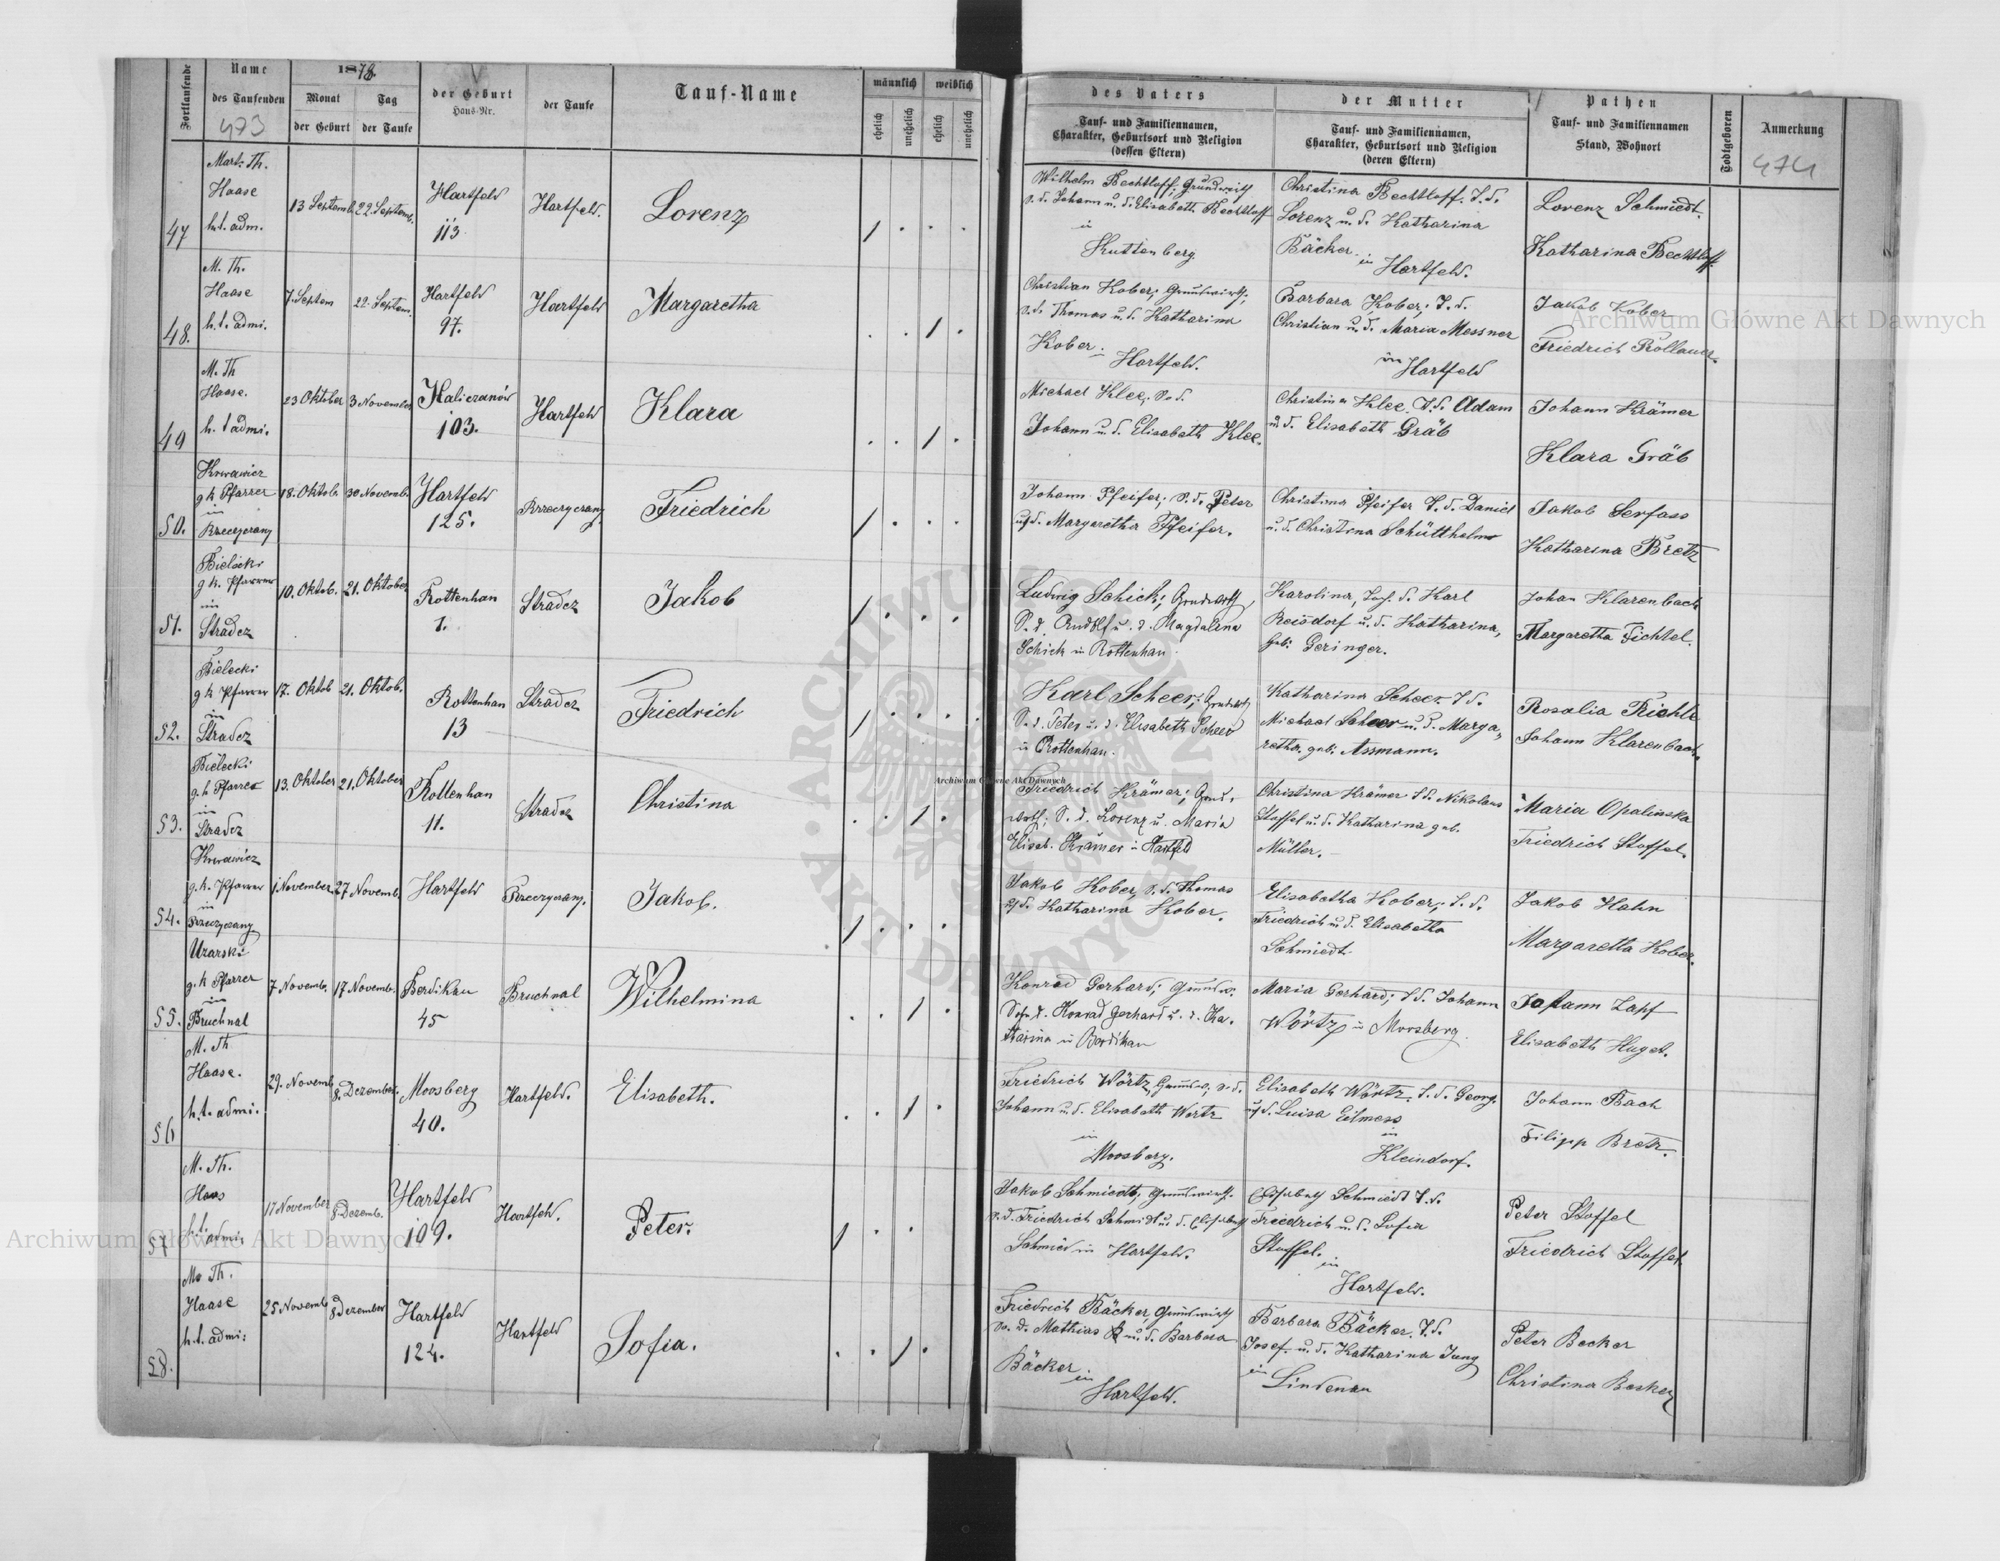 Fortlaufende
Name
des Taufenden
473
1878.
Monat
Tag
der Geburt
der Taufe
der Geburt
Haus-Nr.
der Taufe
Tauf-Name
männlich
weiblich
ehelich
unehelich
ehelich
unehelich
des Vaters
Tauf- und Familiennamen,
Charakter, Geburtsort und Religion
(dessen Eltern)
der Mutter
Tauf- und Familiennamen,
Charakter, Geburtsort und Religion
(deren Eltern)
Pathen
Tauf- und Familiennamen
Stand, Wohnort
Todtgeboren
Anmerkung
474
47
Mart. Th.
Haase
h.t. adm.
13 Septemb.
22. Septemb.
Hartfeld
113
Hartfeld.
Lorenz
Wilhelm Bechtloff; Grundwirth
S. d. Johann u. d. Elisabeth Bechtloff
in
Kuttenberg
Christina Bechtloff. T. d.
Lorenz u. d. Katharina
Bäcker. in Hartfeld.
Lorenz Schmiedt.
Katharina Bechtloff
48.
M. Th.
Haase
h. t. admi.
7. Septem
22. Septem.
Hartfeld
97.
Hartfeld
Margaretha
Christian Kober; Grundwirth;
S. d. Thomas u. d. Katharina
Kober in Hartfeld.
Barbara Kober; T. d.
Christian u. d. Maria Messner
in Hartfeld
Jakob Kober
Friedrich Rollauer.
49
M. Th
Haase.
h. t admi.
23 Oktober
3 November
Haliczanów
103.
Hartfeld
Klara
Michael Klee, S. d.
Johann u. d. Elisabeth Klee.
Christina Klee. T. d. Adam
u. d. Elisabeth Gräb
Johann Krämer
Klara Gräb
50.
Krwawicz
g k Pfarrer
in
Rzeczyczany
18. Oktob.
30 Novemb.
Hartfeld
125.
Rzeczyczany
Friedrich
Johann Pfeifer; S. d. Peter
u. d. Margaretha Pfeifer.
Christina Pfeifer T. d. Daniel
u. d. Christina Schütthelm
Jakob Serfass
Katharina Bretz
51.
Bielecki
g k. Pfarrer
in
Stradcz
10. Oktob.
21. Oktober
Rottenhan
1.
Stradcz
Jakob
Ludwig Schick; Grundwirth,
S. d. Rudolf u. d. Magdalena
Schick in Rottenhan.
Karolina, d. Karl
Reisdorf u. d. Katharina,
geb. Geringer.
Johan Klarenbach
Margaretha Fichtel.
52.
Bielecki
g k Pfarrer
in
Stradcz
17. Oktob
21. Oktob.
Rottenhan
13
Stradcz
Friedrich
Karl Scheer; Grundwirth
S. d. Peter u. d. Elisabeth Scheer
in Rottenhan.
Katharina Scheer T. d.
Michael Scheer u. d. Marga-
retha geb. Assmann.
Rosalia Richle
Johann Klarenbach.
53.
Bielecki
g. k Pfarrer
in
Stradcz
13. Oktober
21. Oktober
Rottenhan
11.
Stradcz
Christina
Friedrich Krämer; Grund-
wirth; S. d. Lorenz u. Maria
Elisab. Krämer in Hartfeld
Christina Krämer T. d. Nikolaus
Stoffel u. d. Katharina geb.
Müller.
Maria Opalinska
Friedrich Stoffel.
54.
Krwawicz
g. k. Pfarrer
in
Rzeczyczany
1 November
27 Novemb.
Hartfeld
Rzeczyczany.
Jakob.
Jakob Kober, S. d. Thomas
u. d. Katharina Kober.
Elisabetha Kober; T. d.
Friedrich u. d. Elisabetha
Schmiedt.
Jakob Hahn
Margaretta Kober.
55.
Uzarski
g. k Pfarrer
in
Bruchnal
7 Novemb.
17 Novemb.
Berdikau
45
Bruchnal
Wilhelmina
Konrad Gerhard; Grundw.
Sohn d. Konrad Gerhard u. d. Ka-
tharina in Berdikau
Maria Gerhard; T. d. Johann
Wörtz in Moosberg
Johann Zapf
Elisabeth Huget.
56
M. Th
Haase.
h.t. admi.
29. Novemb.
8. Dezember.
Moosberg
40.
Hartfeld.
Elisabeth.
Friedrich Wörtz, Grundw, S. d.
Johann u. d. Elisabeth Wörtz
in
Moosberg.
Elisabeth Wörtz, T. d. Georg
u. d. Luisa Eilmess
in
Kleindorf.
Johann Bach
Filipp Bretz.
57
M. Th.
Haas
h.t. admi.
17 November
8. Dezemb.
Hartfeld
109.
Hartfeld.
Peter.
Jakob Schmiedt, Grundwirth.
S. d. Friedrich Schmidt u. d. Elisabeth
Schmied in Hartfeld.
Elisabeth Schmiedt T. d.
Friedrich u. d. Sofia
Stoffel. in
Hartfeld.
Peter Stoffel
Friedrich Stoffel.
58.
M. Th.
Haase
h.t. admi:
25 Novemb
8 Dezember
Hartfeld
124.
Hartfeld
Sofia.
Friedrich Bäcker, Grundwirth
S. d. Mathias B u. d. Barbara
Bäcker in
Hartfeld.
Barbara Bäcker. T. d.
Josef u. d. Katharina Jung
in
Lindenau
Peter Becker
Christina Becker
Archiwum Główne Akt Dawnych
Archiwum Główne Akt Dawnych
Archiwum Główne Akt Dawnych
ARCHIWUM GŁÓWNE AKT DAWNYCH